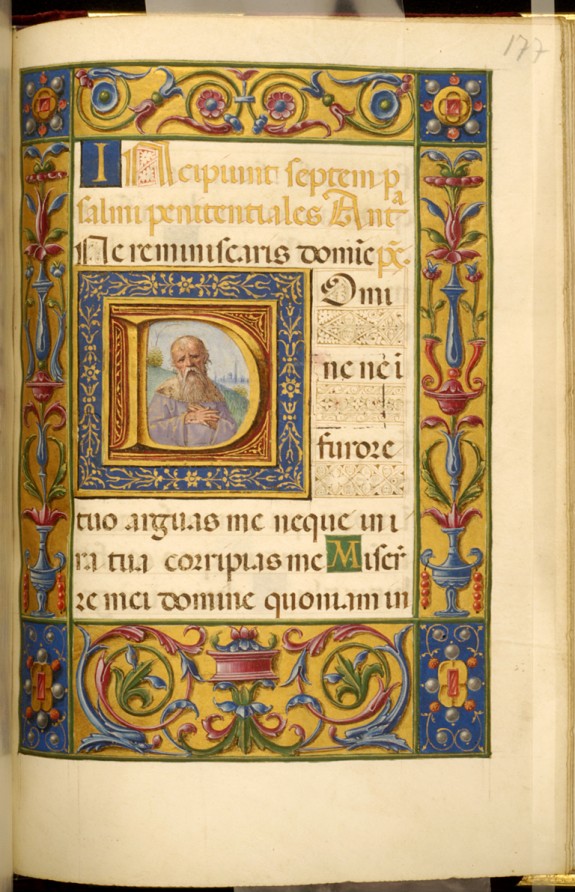 177
Incipiunt septem p
salmi penitentiales Ant̄
a
Ne reminiscaris domīe p̄s.
Omi
ne ne ī
furore
tuo arguas me neque in i
ra tua corripias me Miser̄
re mei domine quoniam in